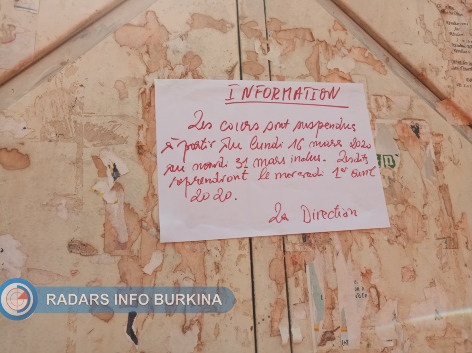 INFORMATION
Les cours sont suspendus
à partir du lundi 16 mars 2020
au mardi 31 mars inclus. Lesdits
reprendront le mercredi 1er avril
2020.
La Direction
RADARS INFO BURKINA